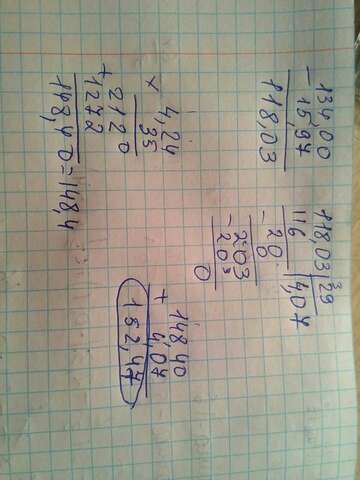 134,00
− 15,97
118,03
118,03 | 29
116 4,07
− 20
0
− 203
203
0
× 4,24
35
2120
+ 1272
148,40=148,4
148,40
+ 4,07
152,47